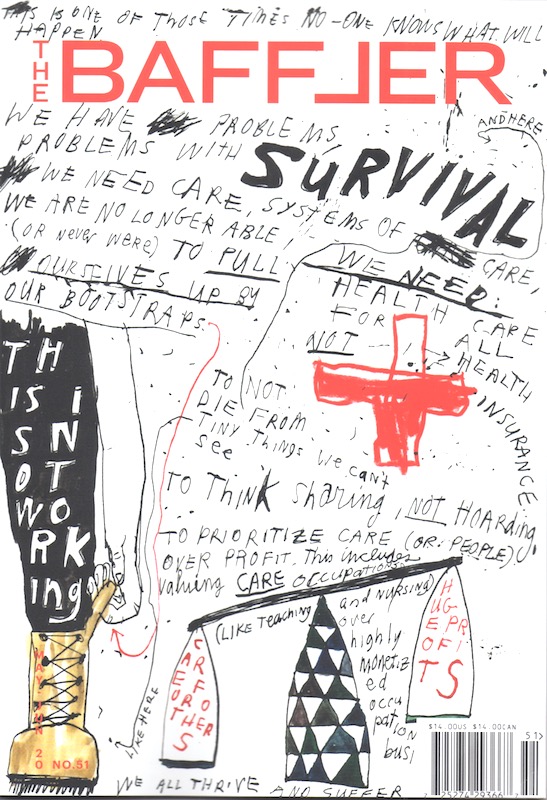 THIS IS ONE OF THOSE TIMES NO-ONE KNOWS WHAT WILL
HAPPEN
THE
BAFFLER
WE HAVE PROBLEMS
AND HERE
PROBLEMS WITH
SURVIVAL
WE NEED CARE, SYSTEMS OF CARE,
WE ARE NO LONGER ABLE,
(OR NEVER WERE) TO PULL
OURSELVES UP BY
OUR BOOTSTRAPS.
WE NEED:
HEALTH CARE
FOR ALL
NOT HEALTH
INSURANCE
TO NOT
DIE FROM
TINY THINGS WE CAN'T
See
TO THINK Sharing, NOT HOARDING.
TO PRIORITIZE CARE (OR: PEOPLE)
OVER PROFIT. This includes
valuing CARE occupations
(LIKE TEACHING and NURSING)
over
highly
monetiz
ed
occu
pation
busi
THIS
IS
NOT
WORKing
INTO
CARE FOR
OTHERS
HUGE
PROFITS
LIKE HERE
MAY JUN 20 NO.51
WE ALL THRIVE AND SUFFER
$14.00US $14.00CAN
51>
7 25274 29366 7